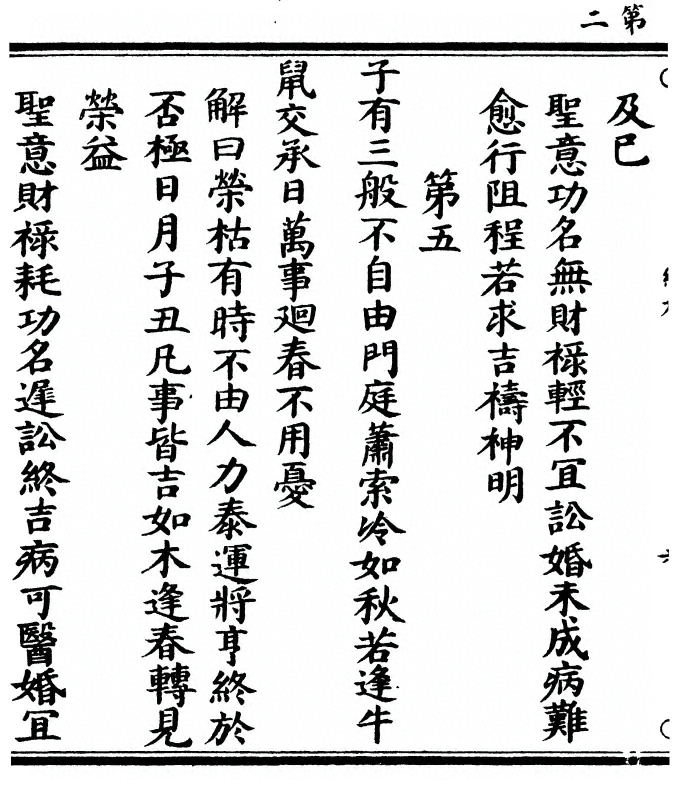 第二
及已
聖意功名無財祿輕不冝訟婚未成病難
愈行阻程若求吉禱神明
第五
子有三般不自由門庭蕭索冷如秋若逢牛
鼠交承日萬事廻春不用憂
解曰榮枯有時不由人力泰運將亨終於
否極日月子丑凡事皆吉如木逢春轉見
榮益
聖意財祿耗功名遲訟終吉病可醫婚冝